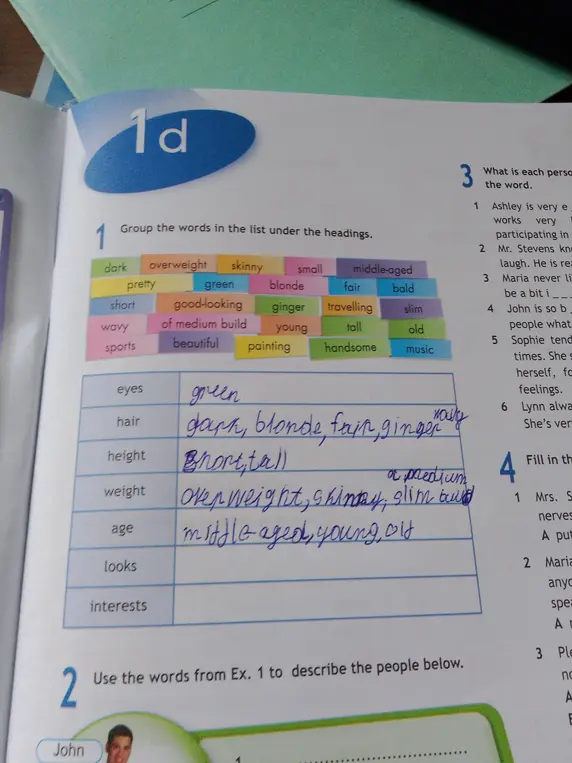 1d
1 Group the words in the list under the headings.
dark overweight skinny small middle-aged
pretty green blonde fair bald
short good-looking ginger travelling slim
wavy of medium build young tall old
sports beautiful painting handsome music
eyes green
hair dark, blonde, fair, ginger wavy
height short, tall
weight overweight, skinny, slim of medium build
age middle-aged, young, old
looks
interests
2 Use the words from Ex. 1 to describe the people below.
John
1
3 What is each perso
the word.
1 Ashley is very e
works very
participating in
2 Mr. Stevens kn
laugh. He is rea
3 Maria never li
be a bit i _ _
4 John is so b
people what
5 Sophie tend
times. She s
herself, fo
feelings.
6 Lynn alwa
She's ver
4 Fill in th
1 Mrs. S
nerves
A pu
2 Maria
anyo
spea
A
3 Ple
no
A